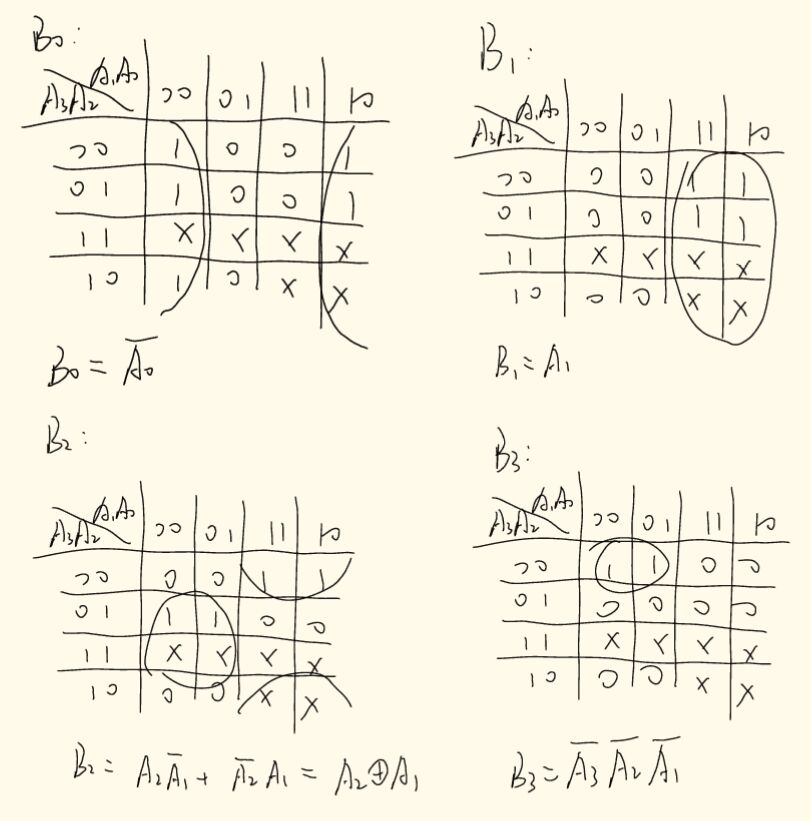 B₀:
A₃A₂ \ A₁A₀ | 00 | 01 | 11 | 10
00 | 1 | 0 | 0 | 1
01 | 1 | 0 | 0 | 1
11 | X | X | X | X
10 | 1 | 0 | X | X
B₀ = A̅₀
B₁:
A₃A₂ \ A₁A₀ | 00 | 01 | 11 | 10
00 | 0 | 0 | 1 | 1
01 | 0 | 0 | 1 | 1
11 | X | X | X | X
10 | 0 | 0 | X | X
B₁ = A₁
B₂:
A₃A₂ \ A₁A₀ | 00 | 01 | 11 | 10
00 | 0 | 0 | 1 | 1
01 | 1 | 1 | 0 | 0
11 | X | X | X | X
10 | 0 | 0 | X | X
B₂ = A₂A̅₁ + A̅₂A₁ = A₂⊕A₁
B₃:
A₃A₂ \ A₁A₀ | 00 | 01 | 11 | 10
00 | 1 | 1 | 0 | 0
01 | 0 | 0 | 0 | 0
11 | X | X | X | X
10 | 0 | 0 | X | X
B₃ = A̅₃ A̅₂ A̅₁